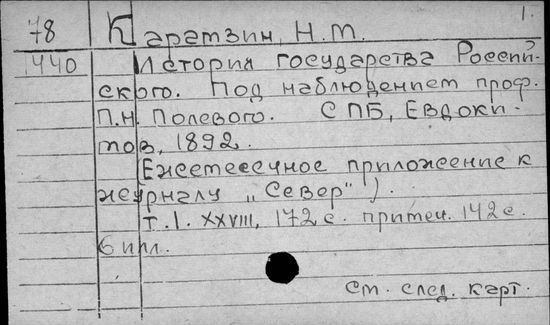 1.
78 Карамзин, Н.М.
440 История государства Россий-
ского. Под наблюдением проф.
П.Н. Полевого. СПБ, Евдоки-
мов, 1892.
Ежемесечное приложение к
журналу „Север").
Т.I. XXVIII, 172 с. примеч. 142 с.
6 илл.
См. след. карт.